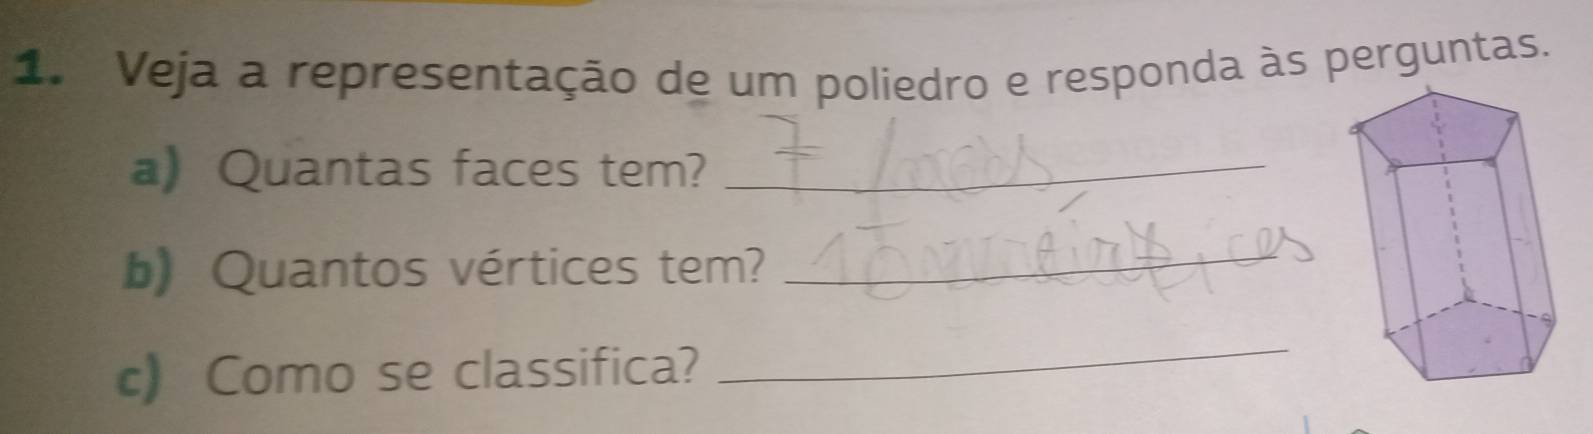 1. Veja a representação de um poliedro e responda às perguntas.
a) Quantas faces tem? 7 faces
b) Quantos vértices tem?
c) Como se classifica?